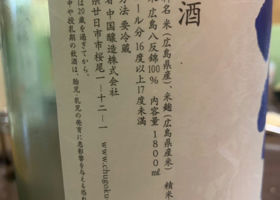 酒
米(広島県産)、米麹(広島県産米) 精米
広島八反錦100% 内容量1800ml
ール分 16度以上17度未満
方法 要冷蔵
中国醸造株式会社
県廿日市市桜尾一ー十二ー一
www.chugoku
は20歳を過ぎてから。
中や授乳期の飲酒は、胎児・乳児の発育に悪影響を与える